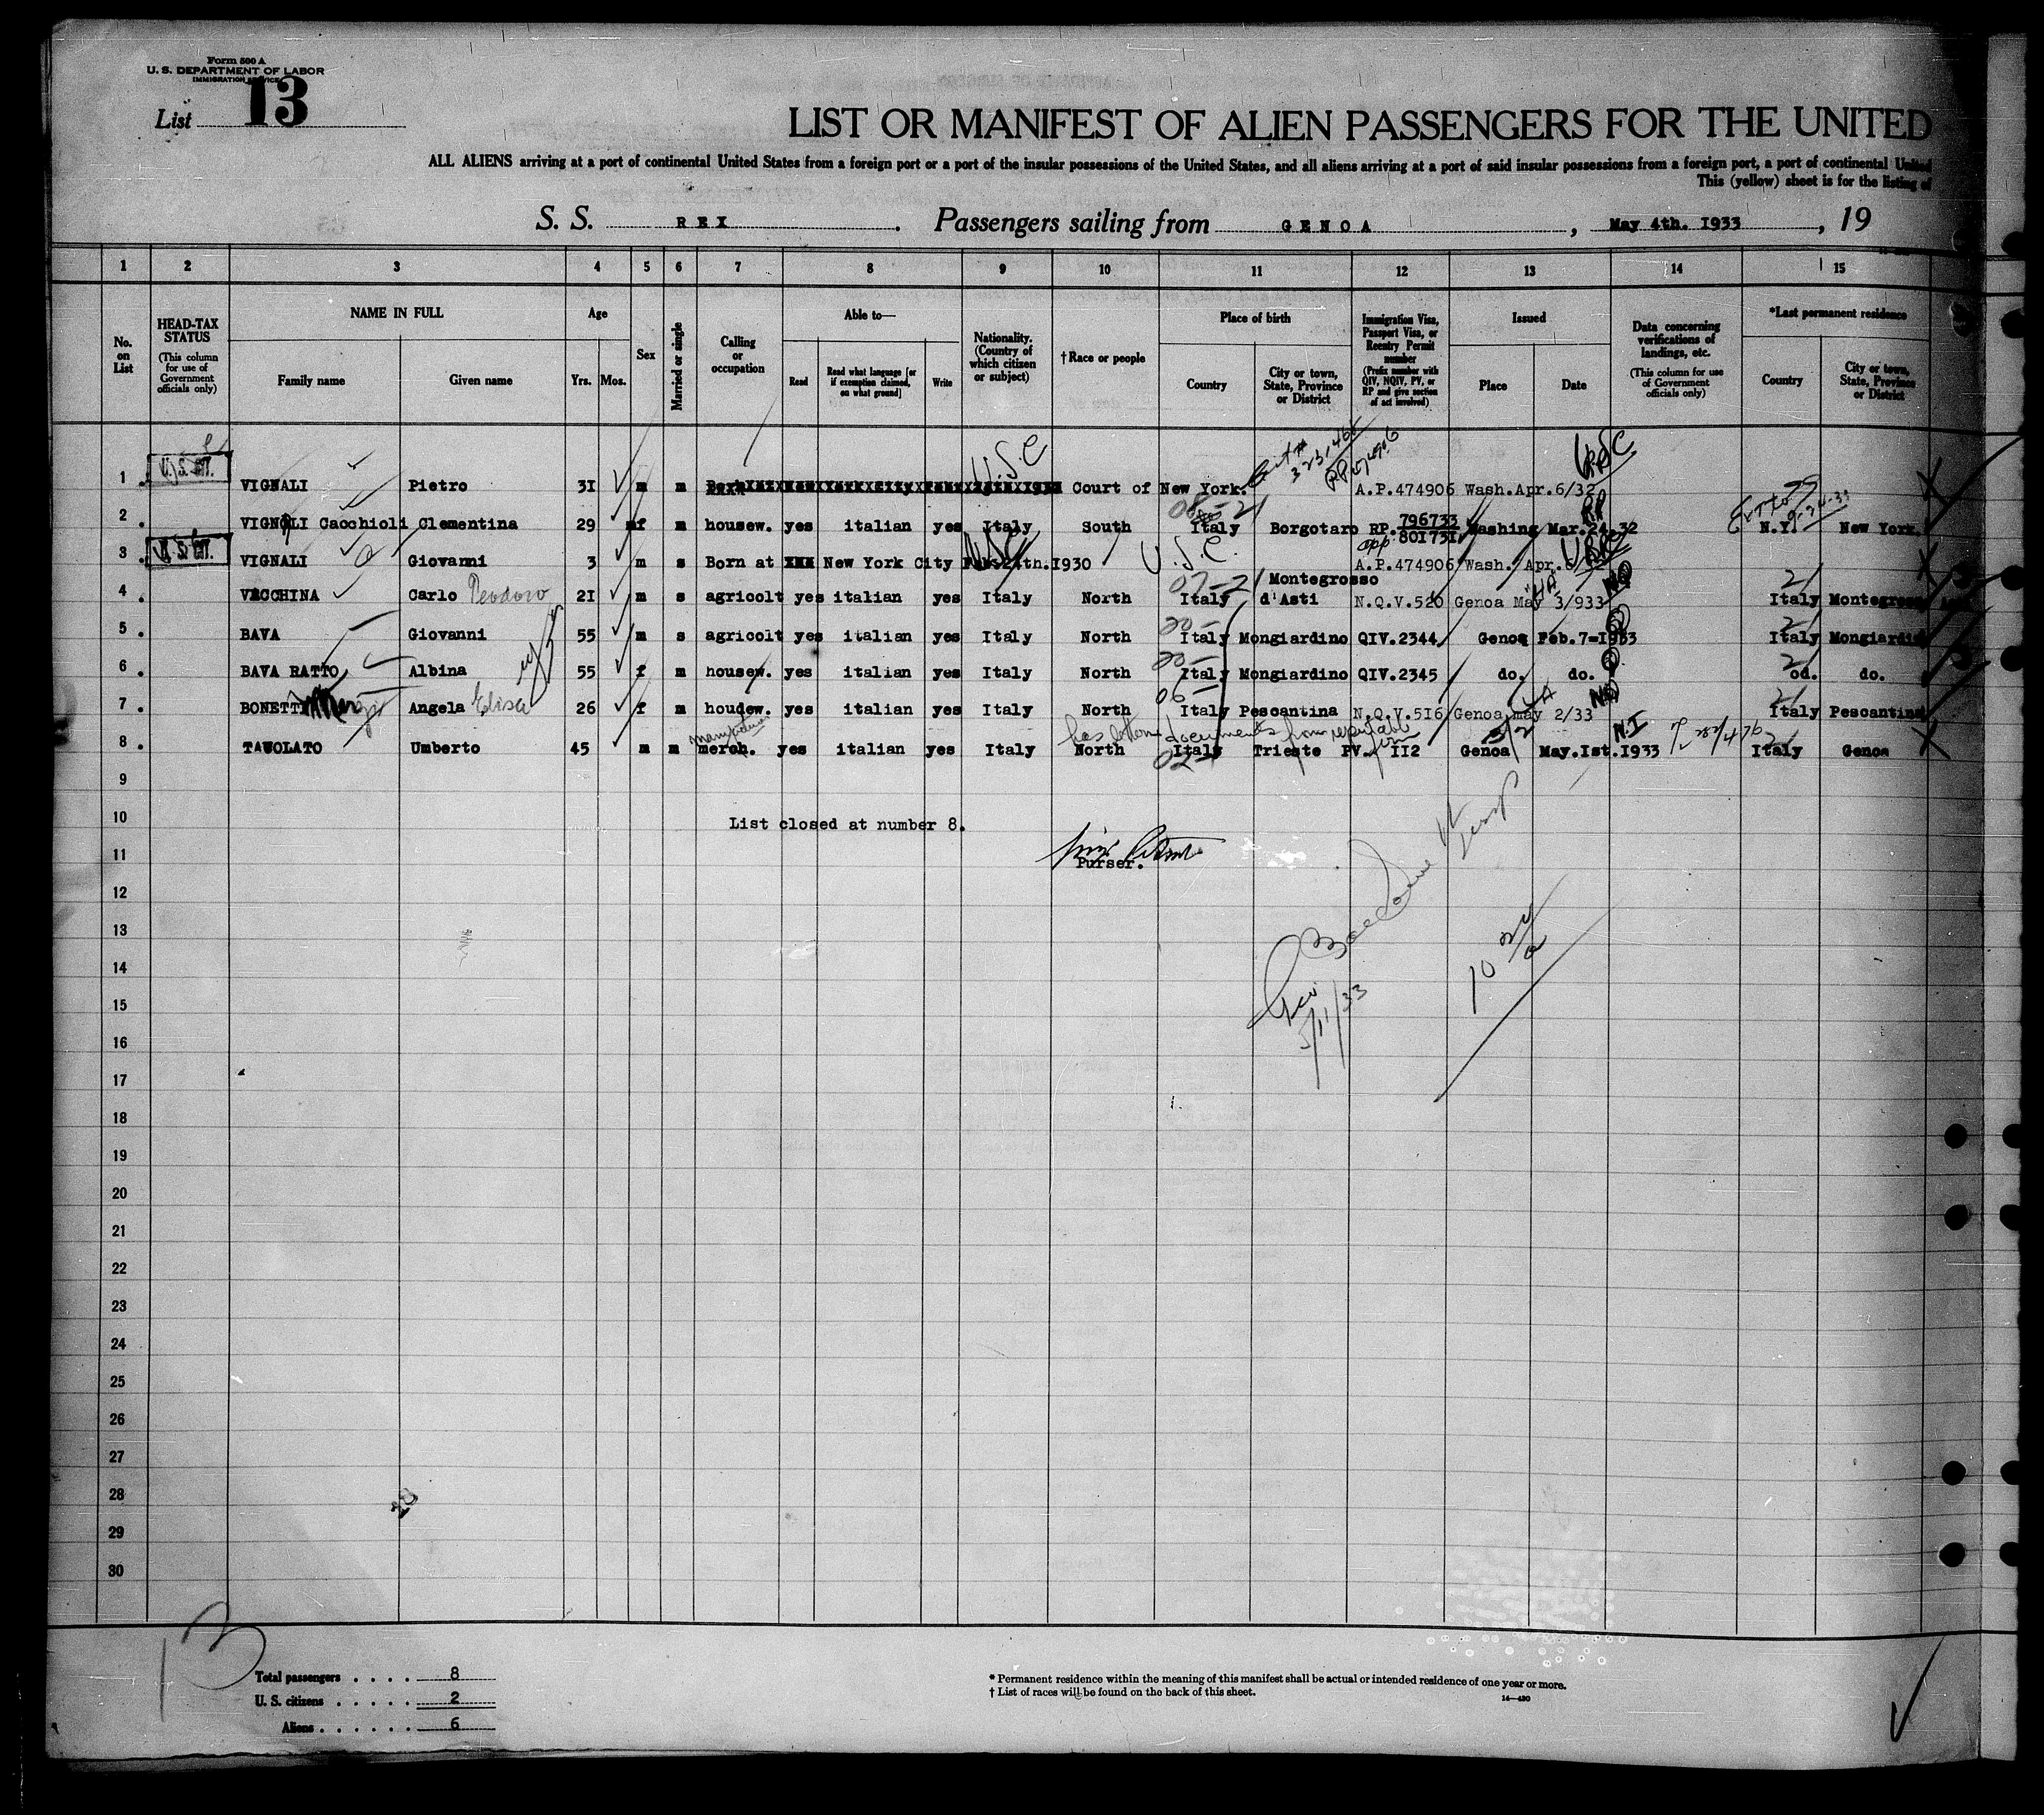 Form 500 A
U. S. DEPARTMENT OF LABOR
IMMIGRATION SERVICE
List 13
LIST OR MANIFEST OF ALIEN PASSENGERS FOR THE UNITED
ALL ALIENS arriving at a port of continental United States from a foreign port or a port of the insular possessions of the United States, and all aliens arriving at a port of said insular possessions from a foreign port, a port of continental United
This (yellow) sheet is for the listing of
S. S. REX. Passengers sailing from GENOA, May 4th. 1933, 19
1 2 3 4 5 6 7 8 9 10 11 12 13 14 15
No. on List
HEAD-TAX STATUS (This column for use of Government officials only)
NAME IN FULL Family name Given name
Age Yrs. Mos.
Sex
Married or single
Calling or occupation
Able to— Read Read what language [or if exemption claimed, on what ground] Write
Nationality. (Country of which citizen or subject)
†Race or people
Place of birth Country City or town, State, Province or District
Immigration Visa, Passport Visa, or Reentry Permit number (Prefix number with QIV, NQIV, PV, or RP and give section of act involved)
Issued Place Date
Data concerning verifications of landings, etc. (This column for use of Government officials only)
*Last permanent residence Country City or town, State, Province or District
U.S.C U.S.C
1 VIGNALI Pietro 31 m m Court of New York. A.P.474906 Wash.Apr.6/32
2 VIGNOLI Cacchioli Clementina 29 f m housew. yes italian yes Italy South Italy Borgotaro RP. 796733 Washing Mar.24.32 N.Y. New York.
801731
3 VIGNALI Giovanni 3 m s Born at New York City Feb.24th.1930 U.S.C. A.P.474906 Wash. Apr.6/32
4 VACCHINA Carlo Teodoro 21 m s agricolt yes italian yes Italy North Italy Montegrosso d'Asti N.Q.V.520 Genoa May 3/933 Italy Montegrosso
5 BAVA Giovanni 55 m s agricolt yes italian yes Italy North Italy Mongiardino QIV.2344 Genoa Feb.7=1933 Italy Mongiardino
6 BAVA RATTO Albina 55 f m housew. yes italian yes Italy North Italy Mongiardino QIV.2345 do. do. od. do.
7 BONETTI Angela Elisa 26 f m houdew. yes italian yes Italy North Italy Pescantina N.Q.V.516 Genoa may 2/33 Italy Pescantina
8 TAVOLATO Umberto 45 m m merch. yes italian yes Italy North Italy Trieste PV. 112 Genoa May.1st.1933 N.I Italy Genoa
9
10 List closed at number 8.
11 Purser.
12
13
14
15 5/11/33
16
17
18
19
20
21
22
23
24
25
26
27
28
29
30
13
Total passengers . . . . 8
U. S. citizens . . . . . 2
Aliens . . . . . . 6
* Permanent residence within the meaning of this manifest shall be actual or intended residence of one year or more.
† List of races will be found on the back of this sheet.
14—430